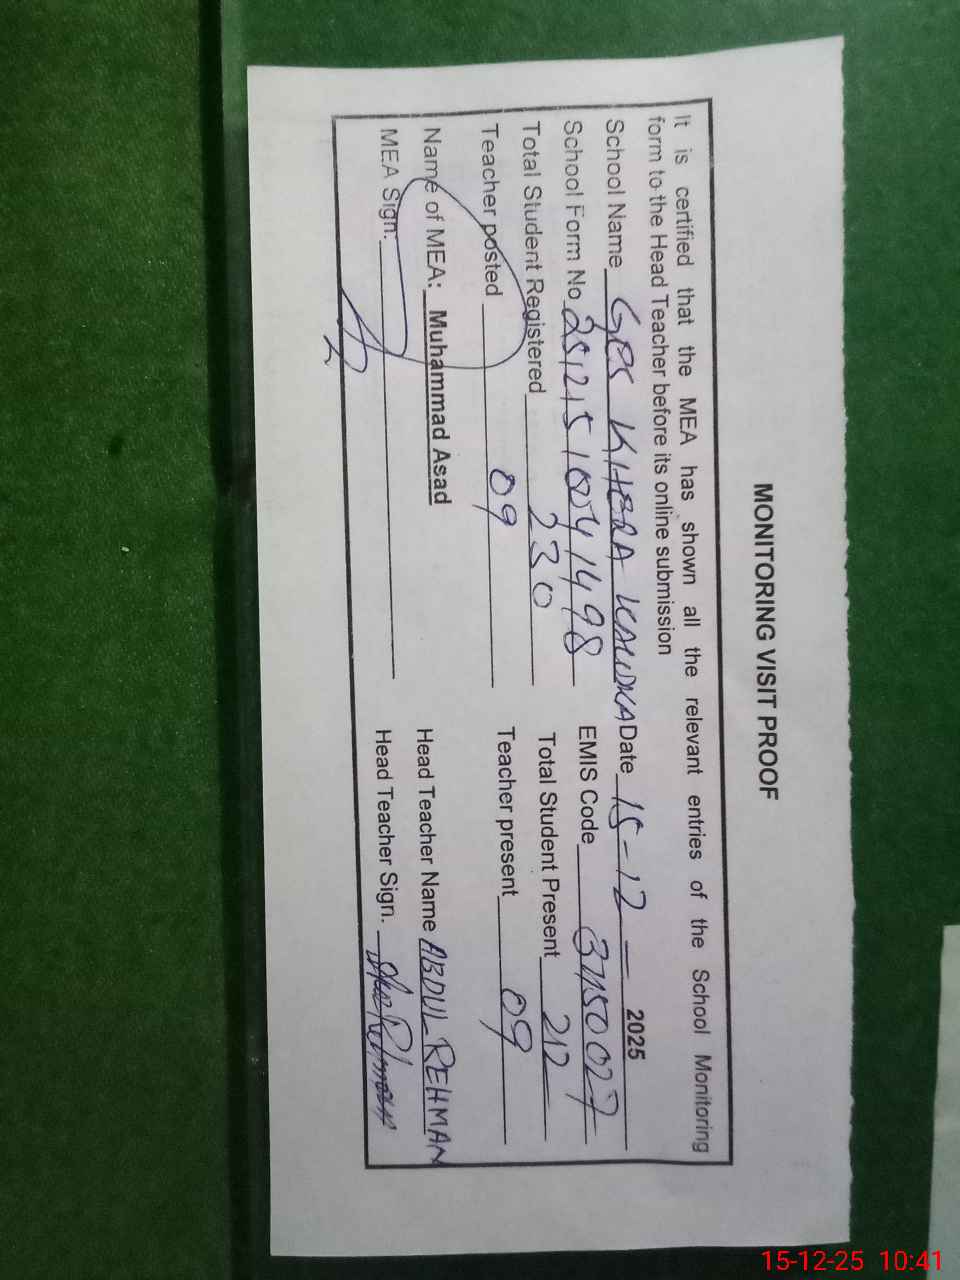 MONITORING VISIT PROOF
It is certified that the MEA has shown all the relevant entries of the School Monitoring
form to the Head Teacher before its online submission
School Name GPS KHORA Date 15-12- 2025
School Form No 25121510041498 EMIS Code 37150027
Total Student Registered 230 Total Student Present 212
Teacher posted 09 Teacher present 09
Name of MEA: Muhammad Asad Head Teacher Name ABDUL REHMAN
MEA Sign. Head Teacher Sign.
15-12-25 10:41